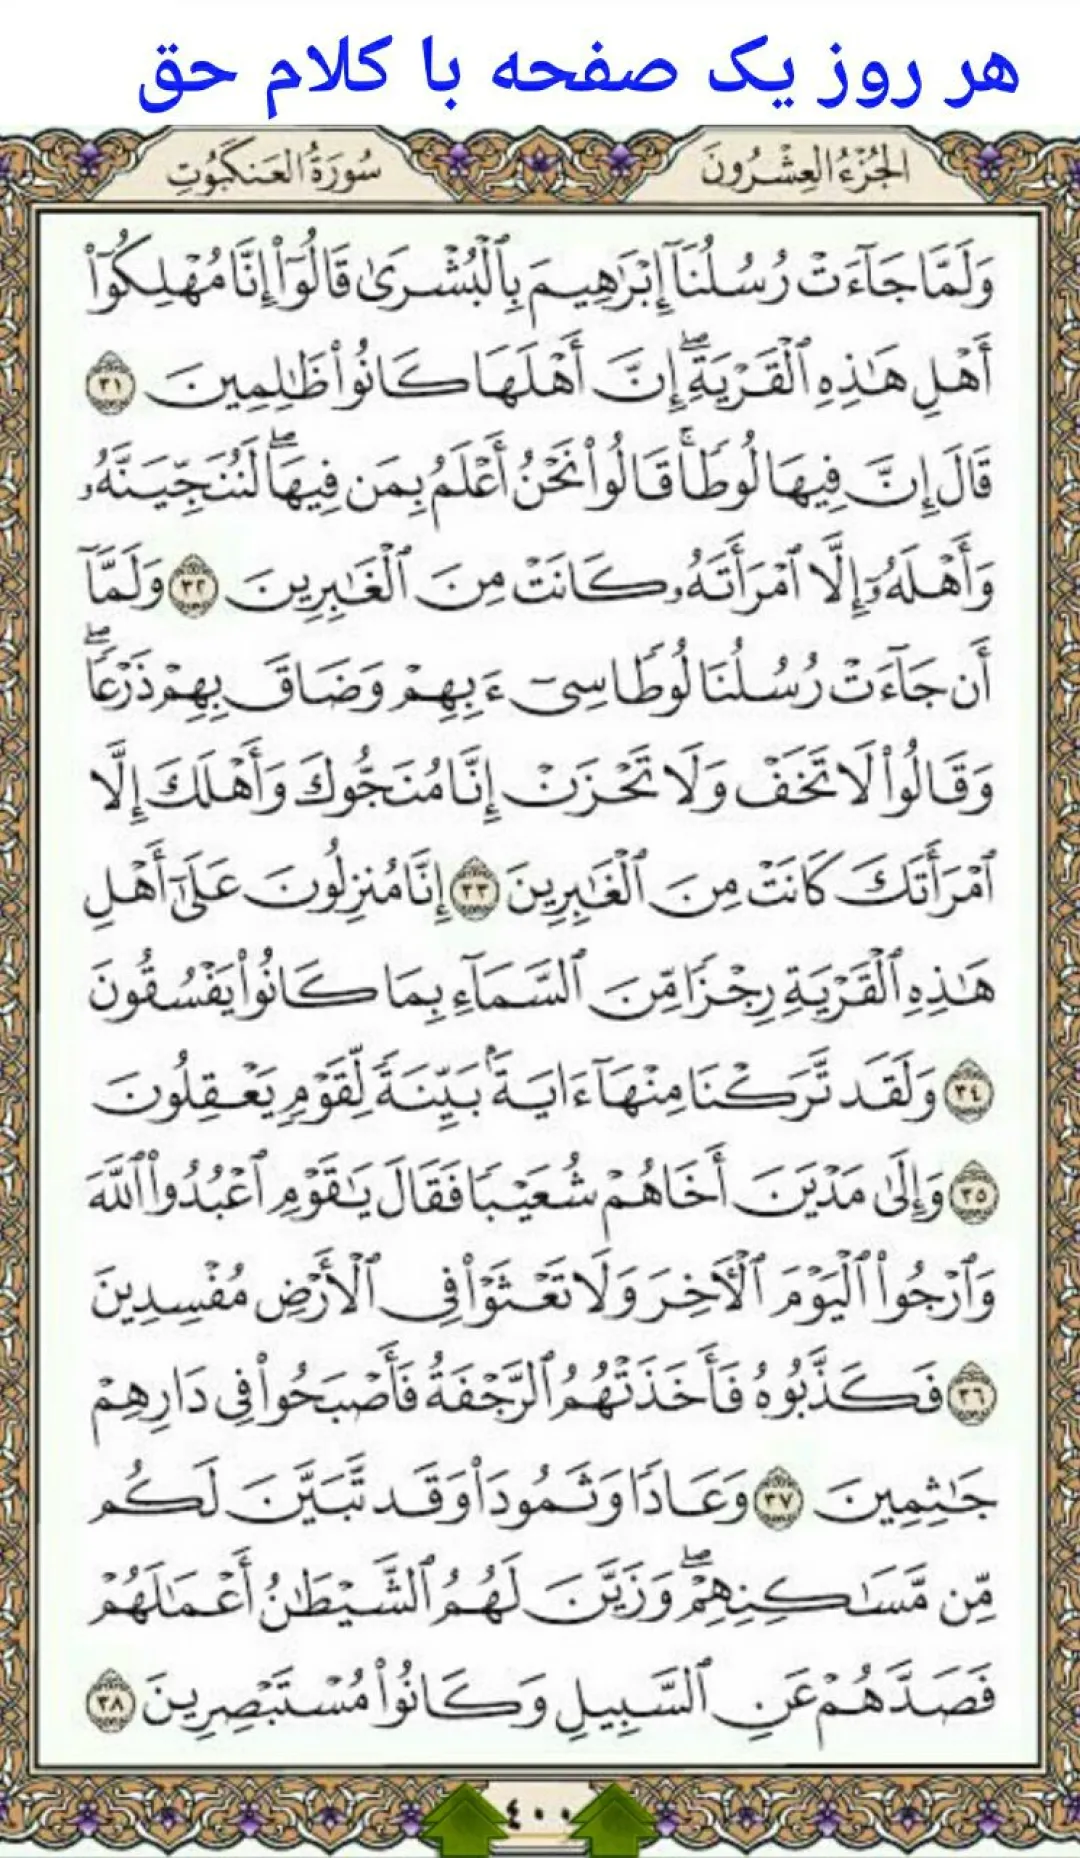 هر روز یک صفحه با کلام حق
الجُزْءُ العِشْرُونَ
سُورَةُ العَنكَبُوتِ
وَلَمَّا جَآءَتْ رُسُلُنَآ إِبْرَٰهِيمَ بِٱلْبُشْرَىٰ قَالُوٓا۟ إِنَّا مُهْلِكُوٓا۟
أَهْلِ هَـٰذِهِ ٱلْقَرْيَةِ ۖ إِنَّ أَهْلَهَا كَانُوا۟ ظَـٰلِمِينَ ٣١
قَالَ إِنَّ فِيهَا لُوطًا ۚ قَالُوا۟ نَحْنُ أَعْلَمُ بِمَن فِيهَا ۖ لَنُنَجِّيَنَّهُۥ
وَأَهْلَهُۥٓ إِلَّا ٱمْرَأَتَهُۥ كَانَتْ مِنَ ٱلْغَـٰبِرِينَ ٣٢ وَلَمَّآ
أَن جَآءَتْ رُسُلُنَا لُوطًا سِىٓءَ بِهِمْ وَضَاقَ بِهِمْ ذَرْعًا ۖ
وَقَالُوا۟ لَا تَخَفْ وَلَا تَحْزَنْ إِنَّا مُنَجُّوكَ وَأَهْلَكَ إِلَّا
ٱمْرَأَتَكَ كَانَتْ مِنَ ٱلْغَـٰبِرِينَ ٣٣ إِنَّا مُنزِلُونَ عَلَىٰٓ أَهْلِ
هَـٰذِهِ ٱلْقَرْيَةِ رِجْزًا مِّنَ ٱلسَّمَآءِ بِمَا كَانُوا۟ يَفْسُقُونَ
٣٤ وَلَقَد تَّرَكْنَا مِنْهَآ ءَايَةًۢ بَيِّنَةً لِّقَوْمٍ يَعْقِلُونَ
٣٥ وَإِلَىٰ مَدْيَنَ أَخَاهُمْ شُعَيْبًا فَقَالَ يَـٰقَوْمِ ٱعْبُدُوا۟ ٱللَّهَ
وَٱرْجُوا۟ ٱلْيَوْمَ ٱلْـَٔاخِرَ وَلَا تَعْثَوْا۟ فِى ٱلْأَرْضِ مُفْسِدِينَ
٣٦ فَكَذَّبُوهُ فَأَخَذَتْهُمُ ٱلرَّجْفَةُ فَأَصْبَحُوا۟ فِى دَارِهِمْ
جَـٰثِمِينَ ٣٧ وَعَادًا وَثَمُودَا۟ وَقَد تَّبَيَّنَ لَكُم
مِّن مَّسَـٰكِنِهِمْ ۖ وَزَيَّنَ لَهُمُ ٱلشَّيْطَـٰنُ أَعْمَـٰلَهُمْ
فَصَدَّهُمْ عَنِ ٱلسَّبِيلِ وَكَانُوا۟ مُسْتَبْصِرِينَ ٣٨
٤٠٠